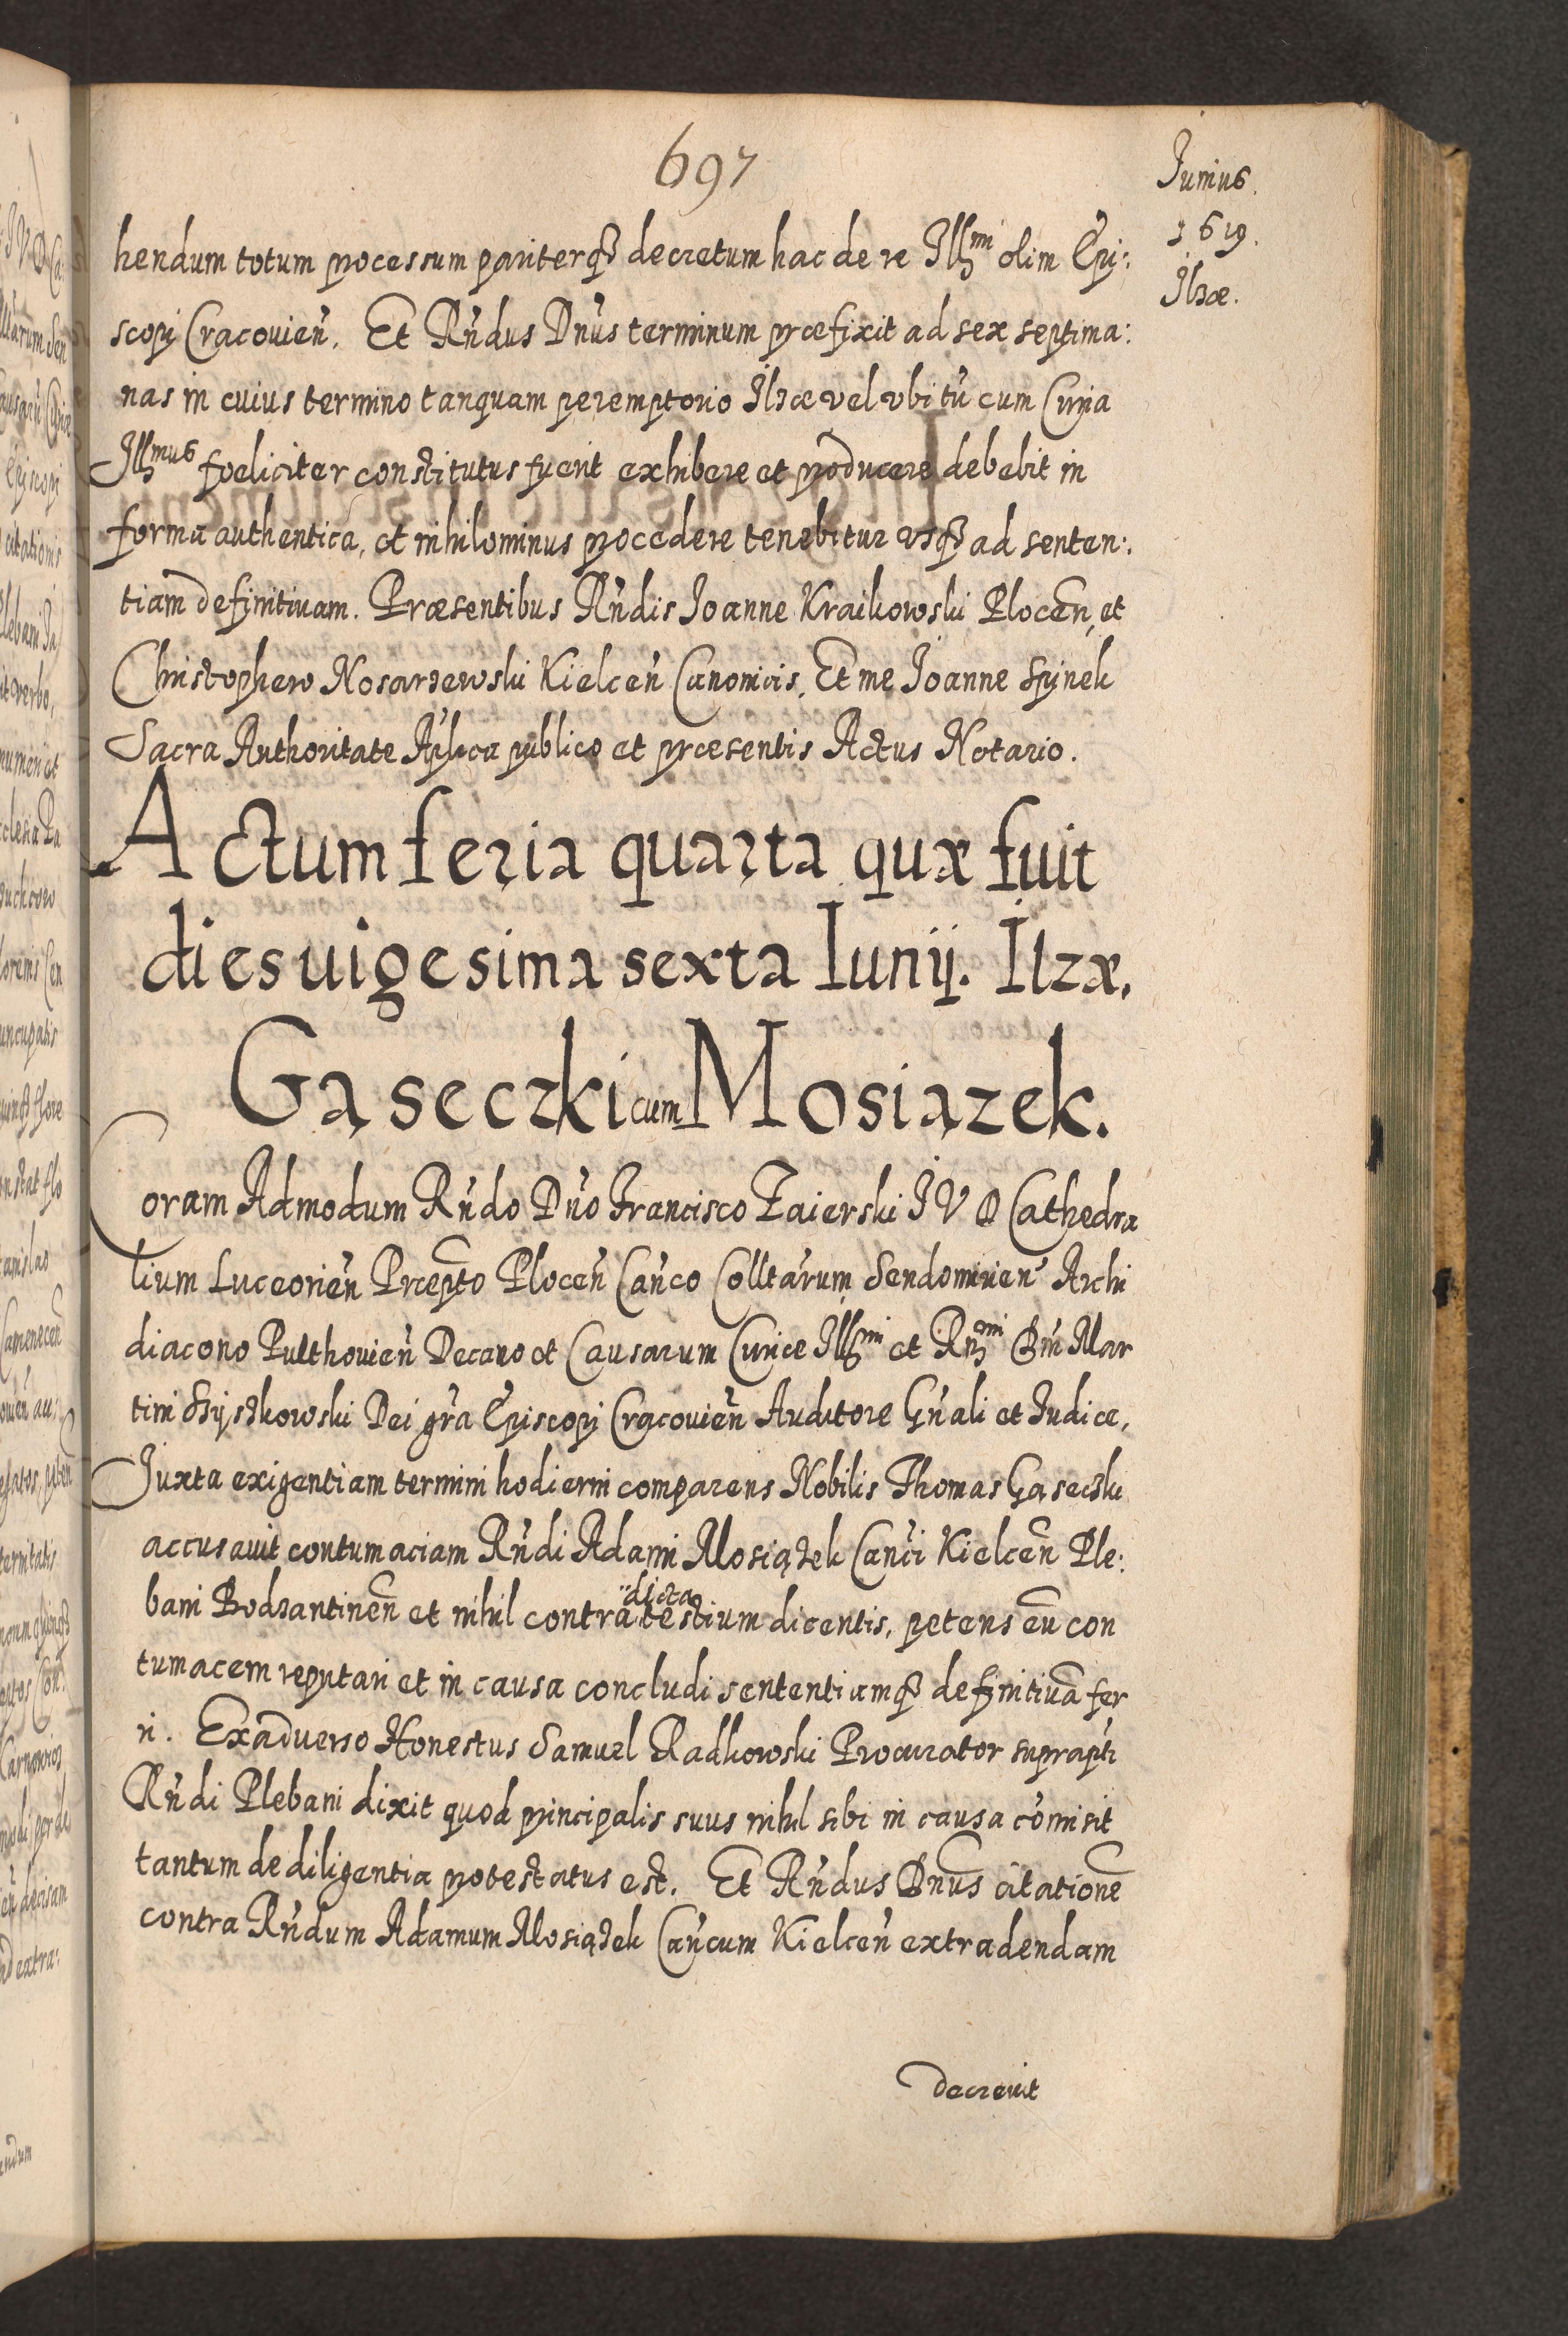 697
Junius.
1619.
Ilzæ.
hendum totum processum pariterq̃ decretum hac de re Illmi olim Epi:
scopi Cracovien̄. Et Rn̄dus Dn̄us terminum præfixit ad sex septima:
nas in cuius termino tanquam peremptorio Ilzæ vel vbi tū cum Curia
Illmus foeliciter constitutus fuerit exhibere et producere debebit in
forma authentica, et nihilominus procedere tenebitur vsq̃ ad senten:
tiam definitivam. Præsentibus Rn̄dis Joanne Kraikowski Plocen̄, et
Christophero Nosarzewski Kielcen̄ Canonicis. Et me Joanne Spinek
Sacra Authoritate Aplica publico et præsentis Actus Notario.
Actum feria quarta quæ fuit
dies uigesima sexta Iunij. Ilzæ.
Gąseczki cum Mosiązek.
Coram Admodum Rn̄do Dn̄o Francisco Zaierski J V D Cathedra
lium Luceorien̄ Præpto Plocen̄ Can̄co Colltarum Sendomirien̄ Archi
diacono Pulthovien̄ Decano et Causarum Curiæ Illmi et Rn̄mi Dn̄i Mar
tini Szyszkowski Dei gr̄a Episcopi Cracovien̄ Auditore Gn̄ali et Judice,
Juxta exigentiam termini hodierni comparens Nobilis Thomas Gąseczki
accusavit contumaciam Rn̄di Adami Mosiązek Can̄ci Kielcen̄ Ple:
bani Bodzantinen̄ et nihil contra dicta testium dicentis, petens eū con
tumacem reputari et in causa concludi sententiamq̃ definitivā fer
ri. Ex adverso Honestus Samuel Radkowski Procurator suprapti
Rn̄di Plebani dixit quod principalis suus nihil sibi in causa cōmisit
tantum de diligentia protestatus est. Et Rn̄dus Dn̄us citationē
contra Rn̄dum Adamum Mosiązek Can̄cum Kielcen̄ extradendam
decrevit